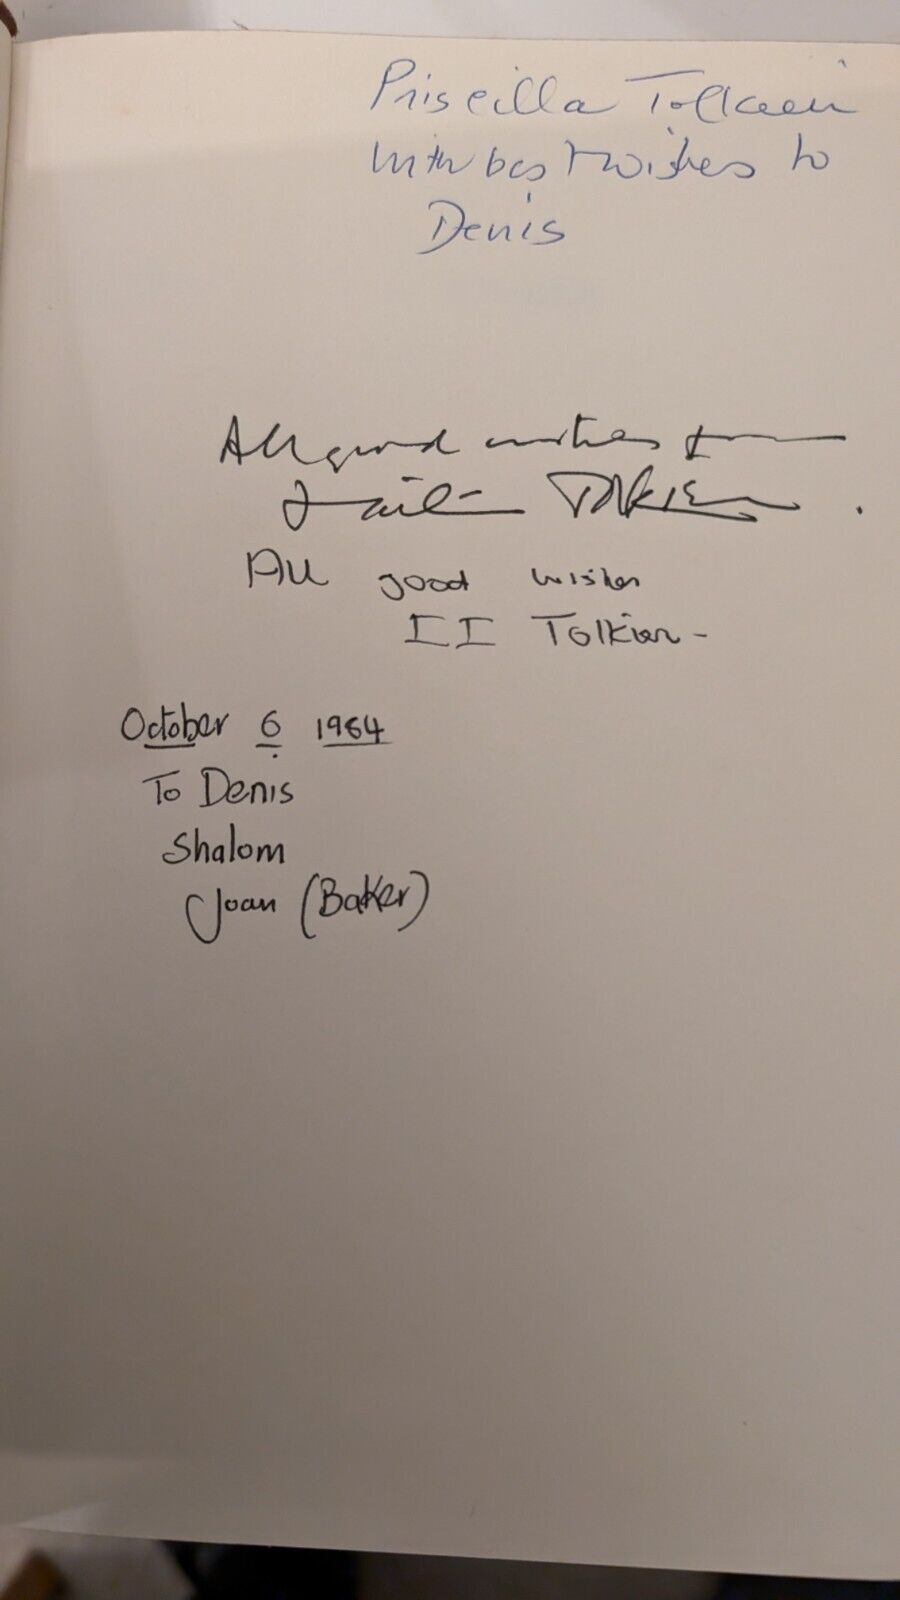 Priscilla Tolkien
with best wishes to
Denis
All good wishes from
Tolkien
All good wishes
II Tolkien
October 6 1984
To Denis
Shalom
Joan (Baker)